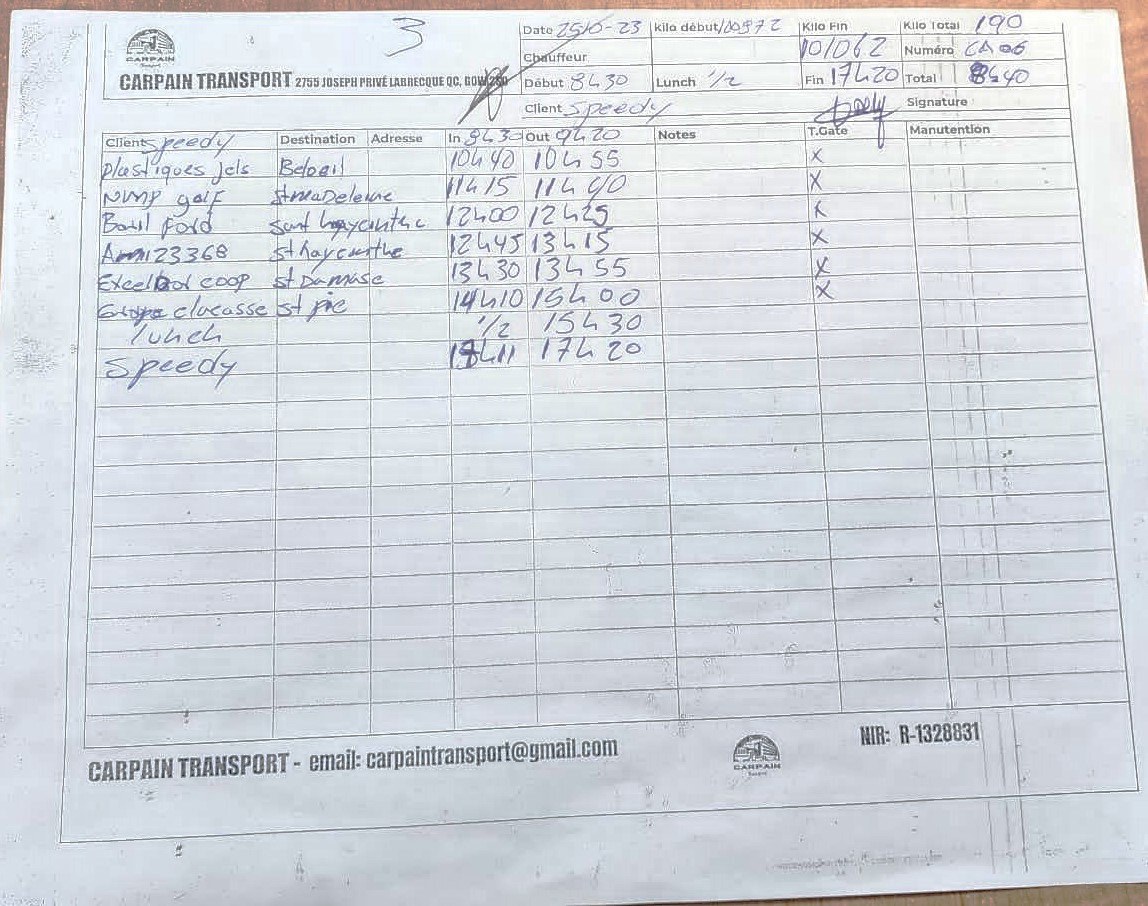 3
Date 25/10-23 Kilo début 100872 Kilo Fin 101062 Kilo Total 190
CARPAIN
Transport
Chauffeur Numéro CA06
CARPAIN TRANSPORT 2755 JOSEPH PRIVÉ LABRECQUE QC. GOW 2S0
Début 8h30 Lunch 1/2 Fin 17h20 Total 8h40
Client Speedy Signature
Client speedy Destination Adresse In 8h30 Out 9h20 Notes T.Gate Manutention
plastiques jels Beloeil 10h40 10h55 X
NMP golf st madeleine 11h15 11h40 X
Baril Ford saint haycinthe 12h00 12h25 X
Ami 23368 st haycinthe 12h45 13h15 X
Excelldol coop st Damase 13h30 13h55 X
clucasse st pie 14h10 15h00 X
lunch 1/2 15h30
Speedy 17h20
CARPAIN TRANSPORT - email: carpaintransport@gmail.com
CARPAIN
Transport
NIR: R-1328831